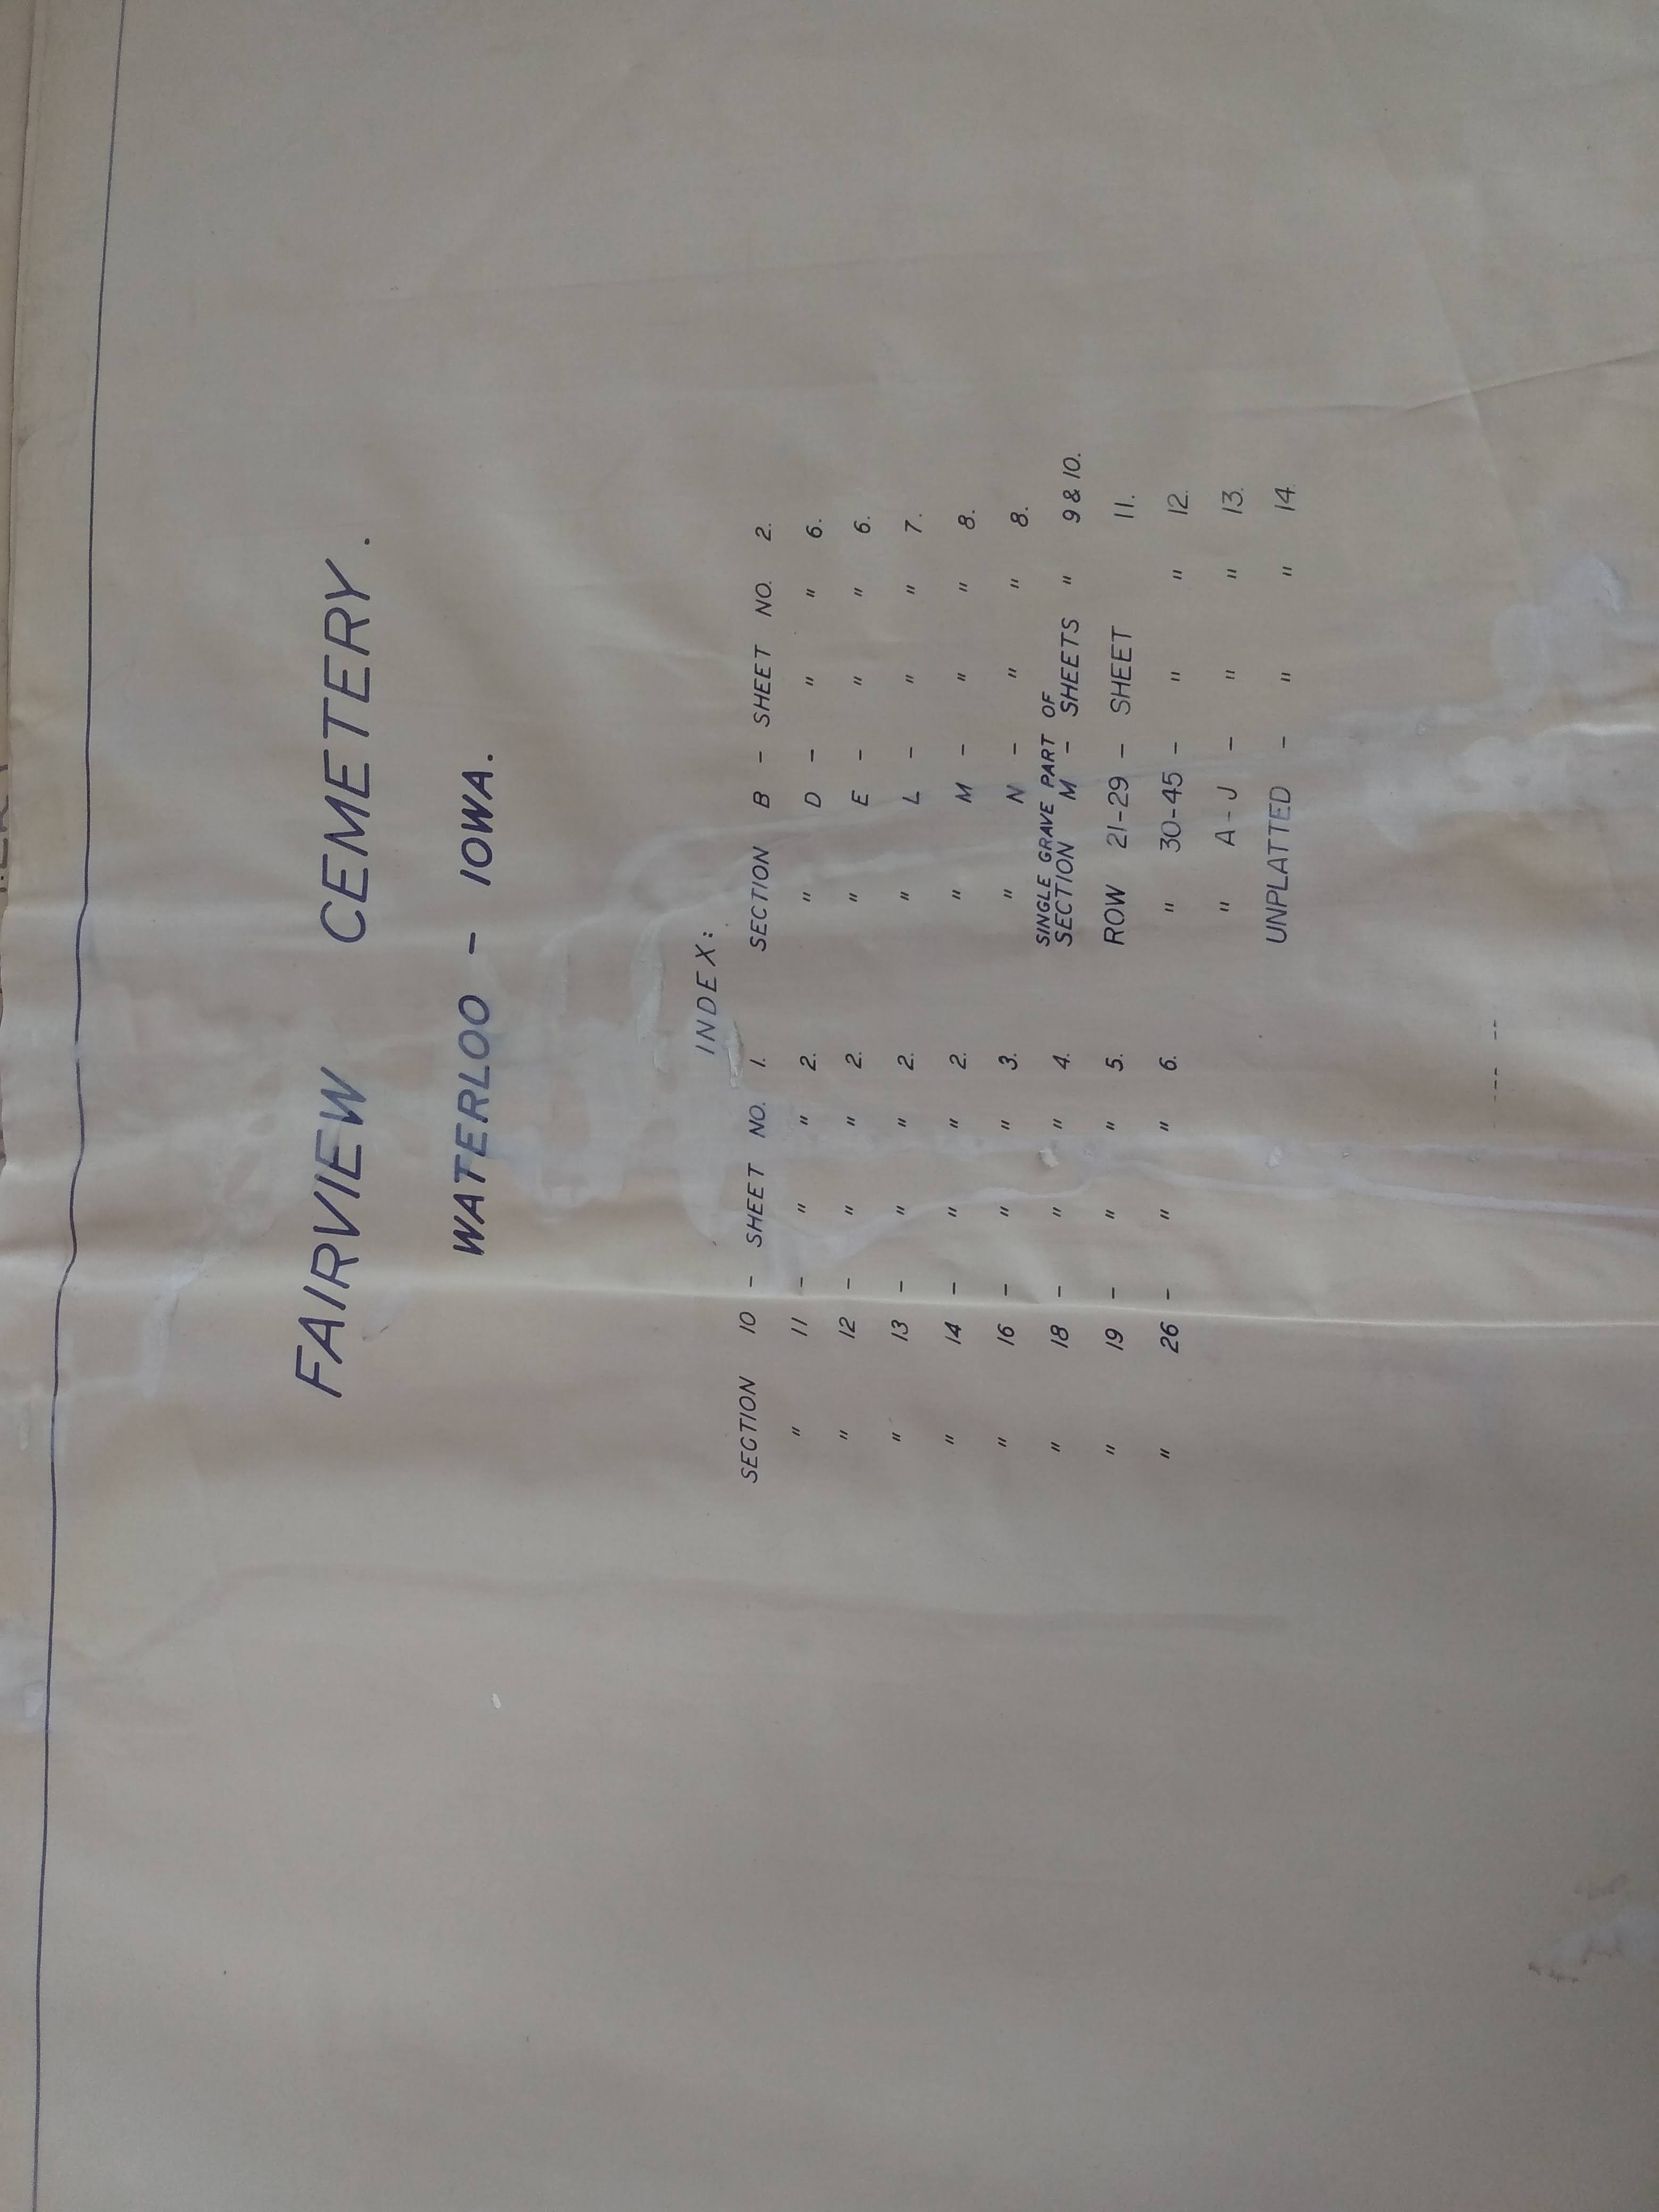 FAIRVIEW CEMETERY.
WATERLOO - IOWA.
INDEX:
SECTION 10 - SHEET NO. 1.
" 11 - " " 2.
" 12 - " " 2.
" 13 - " " 2.
" 14 - " " 2.
" 16 - " " 3.
" 18 - " " 4.
" 19 - " " 5.
" 26 - " " 6.
SECTION B - SHEET NO. 2.
" D - " " 6.
" E - " " 6.
" L - " " 7.
" M - " " 8.
" N - " " 8.
SINGLE GRAVE PART OF
SECTION M - SHEETS " 9 & 10.
ROW 21-29 - SHEET 11.
" 30-45 - " " 12.
" A-J - " " 13.
UNPLATTED - " " 14.